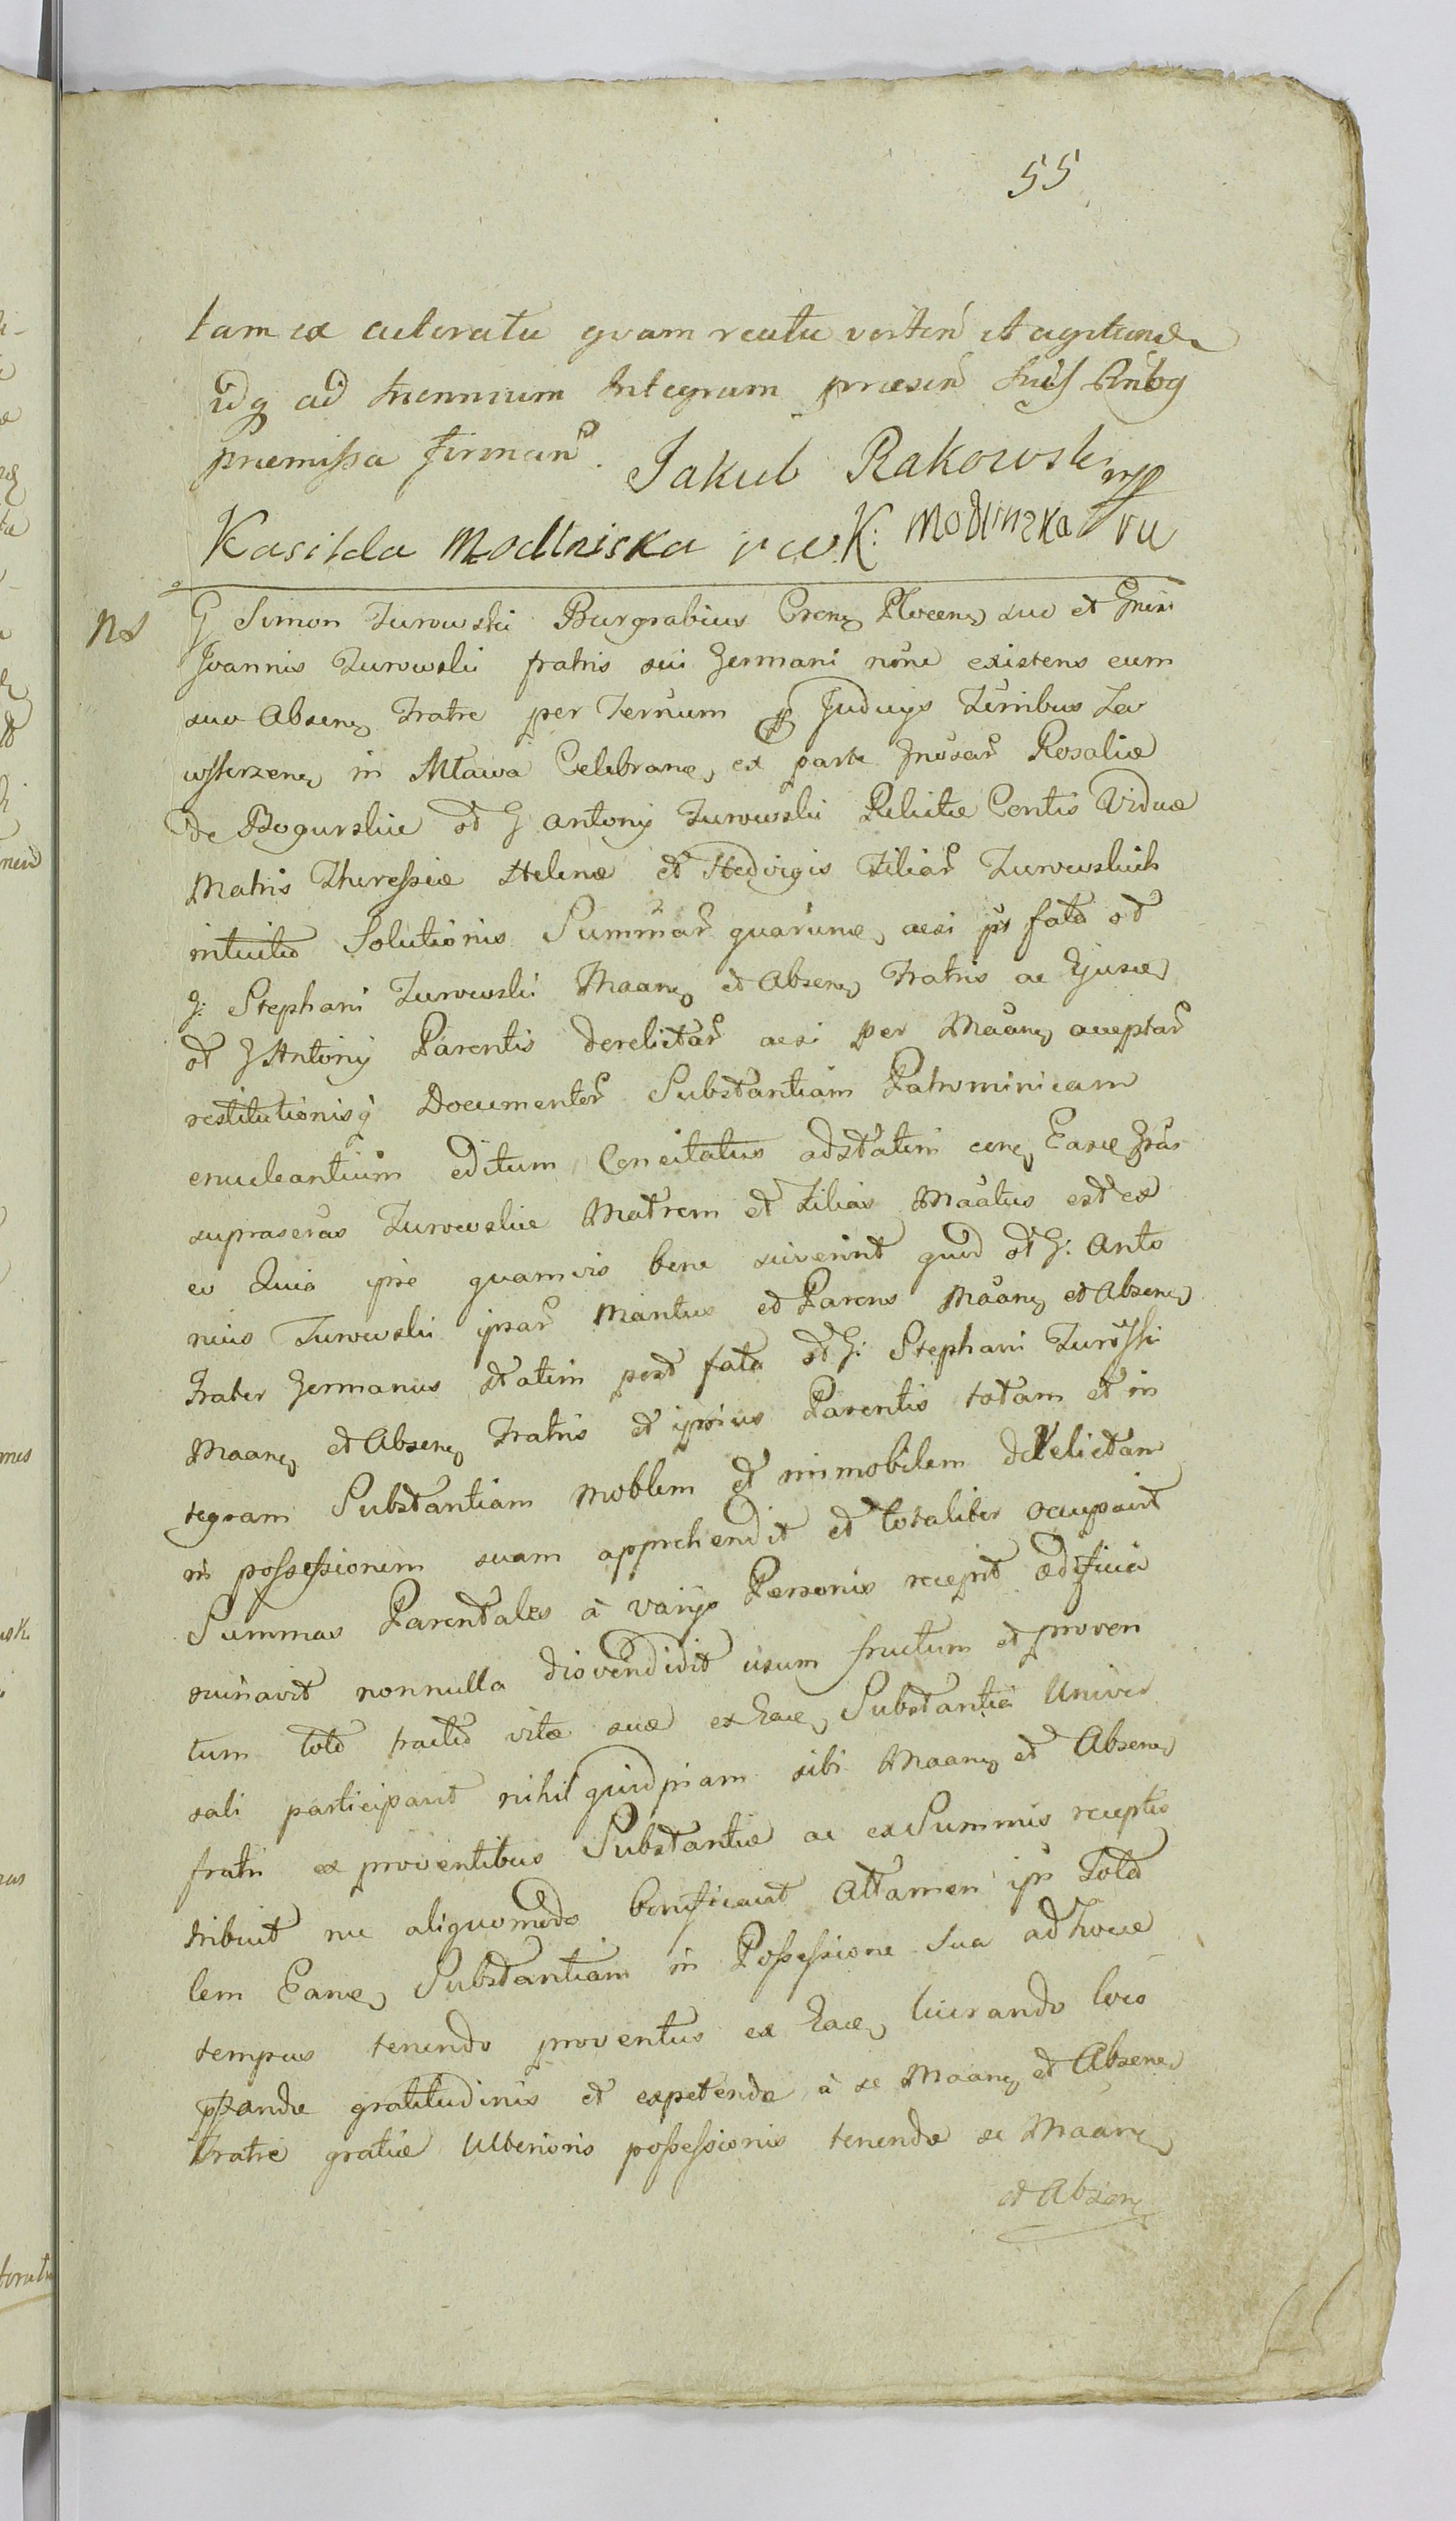 55
tam ex actoratu quam reatu verten et agitand
idq ad triennium Integrum praesen
praemissa firman. Jakub Rakowski mp
Kasilda Modlinska K: Modlinska
Ns G Simon Zurowski Burgrabius Cren Plocen suo et Gnrsi
Joannis Zurowski fratris sui Germani nõne existens cum
suo Absen Fratre per Ternum Judicijs Terribus Za
wskrzen in Mława Celebran, ex parte Gnosar Rosaliæ
de Bogurskie od G Antonij Zurowski Relictæ Contis Viduæ
Matris Theressiæ Helenæ et Hedvigis Filiar Zurowskich
intuitu Solutionis Summar quarunc, acsi ps fata od
G: Stephani Zurowski Maan et Absen Fratris ac Ejusd
od G Antonij Parentis derelictar acsi per Maan acceptar
restitutionisq Documentor Substantiam Patrominicam
enucleantium editum Concitatus adstatim con Easd Gras
suprascras Zurowskie Matrem et Filias Maatus est ex
eo Quia ipse quamvis bene sciverint quod od G: Anto
nius Zurowski ipsar Maritus et Parens Maan et Absen
Frater Germanus statim post fata od G: Stephani Zurowski
Maan et Absen Fratris et ipsius Parentis totam et in
tegram Substantiam moblem et immobilem derelictam
in possessionem suam apprehendit et totaliter occupavit
Summas Parentales à varijs Personis recepit ædificia
ruinavit nonnulla disvendidit usum fructum et proven
tum toto tractu vitæ suæ ex Eace, Substantia Univer
sali participavit nihil quidpiam sibi Maan et Absen
fratri ex proventibus Substantiæ ac ex Summis receptis
tribuit nec aliquomodo bonificavit Attamen ips Tota
lem Eanc, Substantiam in Possessione sua ad hocce
tempus tenendo proventus ex Eace, lucrando loco
pstandæ gratitudinis et expetendæ à se Maan et Absen
Fratre gratiæ Ulterioris possessionis tenendæ se Maan
et Absen